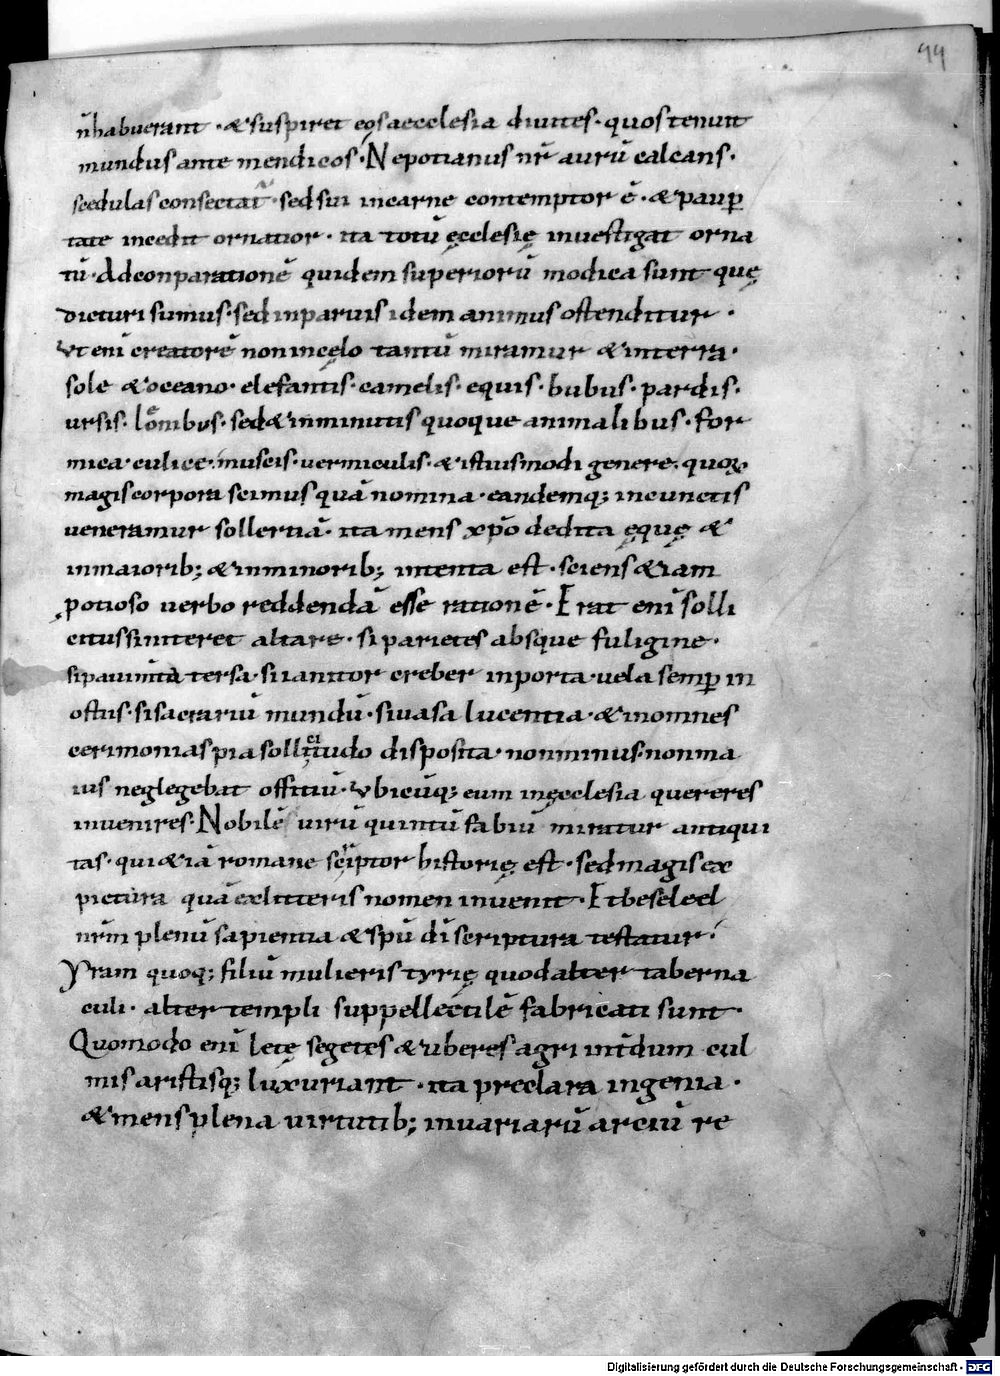 99
n̄habuerant · & suspiret eos aecclesia diuites · quos tenuit
mundus ante mendicos · Nepotianus nr̄ aurū calcans ·
scedulas consectat̄ · sed sui incarne contemptor ē · & paup̲
tate incedit ornatior · ita totū ęcclesię inuestigat orna
tū · Adconparationē quidem superiorū modica sunt quę
dicturi sumus · sed inparuis idem animus ostenditur ·
Ut enī creatorē non incęlo tantū miramur & interra ·
sole & oceano · elefantis · camelis · equis · bubus · pardis ·
ursis · leonibus · sed & inminutis quoque animalibus · for
mica · culice · muscis · uermiculis · & istiusmodi genere · quoꝝ
magis corpora scimus quā nomina · eandemq; incunctis
ueneramur sollertiā · ita mens xp̄o dedita ęquę &
inmaiorib; & inminorib; intenta est · sciens & iam
potioso uerbo reddendā esse rationē · Erat enī solli
citus si niteret altare · si parietes absque fuligine ·
si pauim̄ta tersa · si ianitor creber inporta · uela semp̲ in
ostiis · si sacrariū mundū · si uasa lucentia · & inomnes
cerimonias pia sollicitudo disposita · non minus · non ma
ius neglegebat offitiū · ubicūq; eum inęcclesia quereres
inuenires · Nobilē uirū quintū fabiū miratur antiqui
tas · qui & iā romane scriptor historię est · sed magis ex
pictura quā exlitteris nomen inuenit · Et beseleel
nr̄m plenū sapientia & sp̄ū dī scriptura testatur ·
Yram quoq; filiū mulieris tyrię quod alter taberna
culi · alter templi suppellectilē fabricati sunt ·
Quomodo enī letę segetes & uberes agri int̄dum cul
mis aristisq; luxuriant · ita preclara ingenia ·
& mens plena uirtutib; inuariarū arciū re
Digitalisierung gefördert durch die Deutsche Forschungsgemeinschaft · DFG